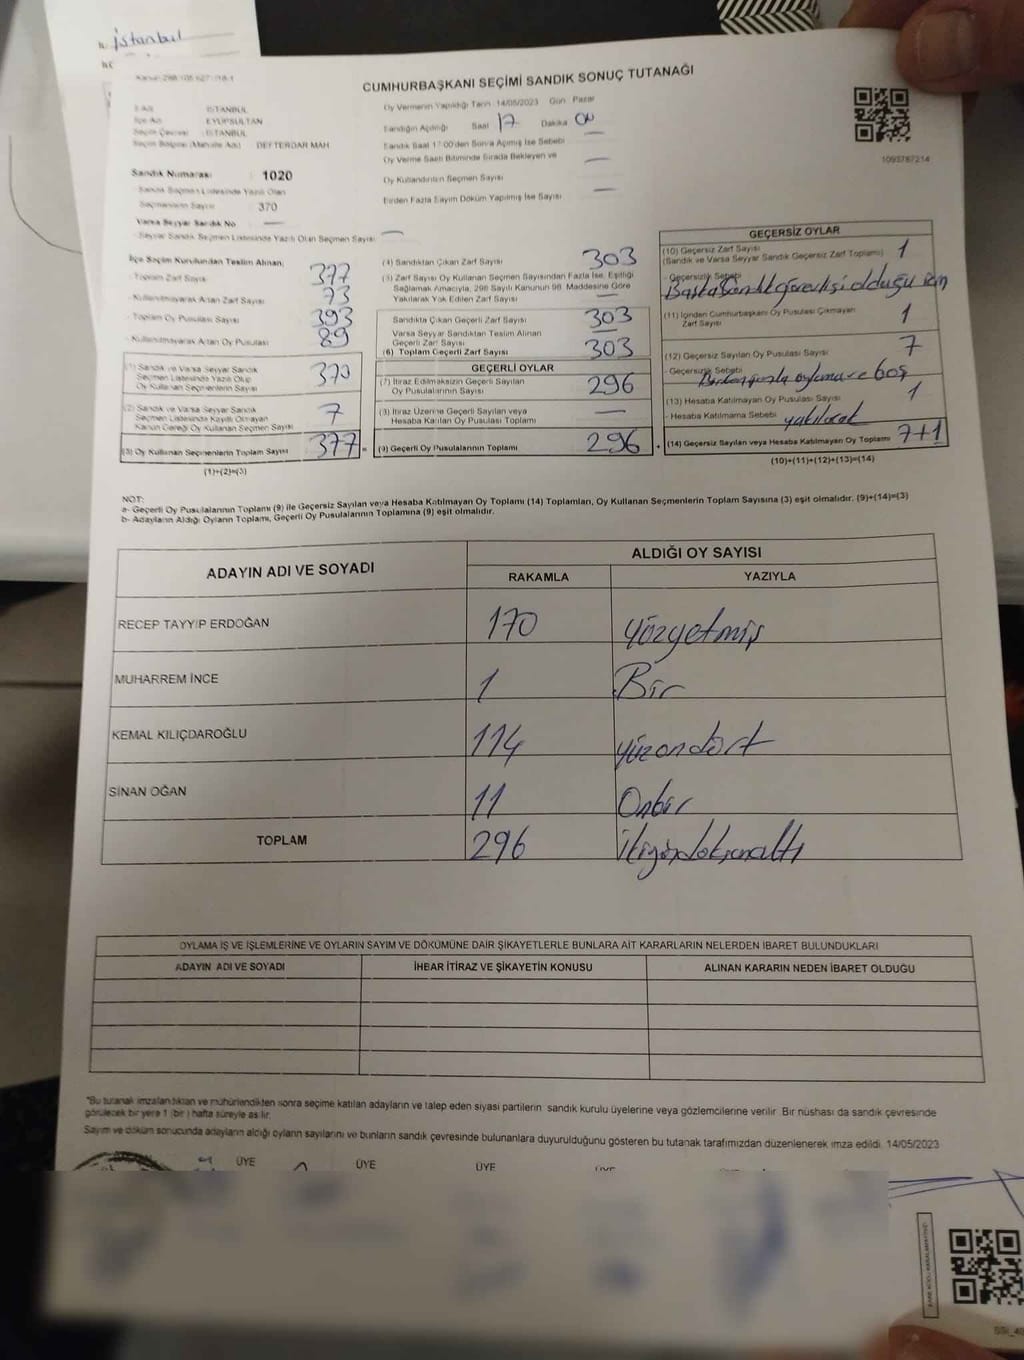 İstanbul
CUMHURBAŞKANI SEÇİMİ SANDIK SONUÇ TUTANAĞI
Oy Vermenin Yapıldığı Tarih : 14/05/2023 Gün : Pazar
İl Adı : İSTANBUL
İlçe Adı : EYÜPSULTAN
Seçim Çevresi : İSTANBUL
Seçim Bölgesi (Mahalle Adı) : DEFTERDAR MAH.
Sandığın Açıldığı Saat 17 Dakika 00
Sandık Saat 17:00'den Sonra Açılmış İse Sebebi —
Oy Verme Saati Bitiminde Sırada Bekleyen ve
Oy Kullandırılan Seçmen Sayısı —
Birden Fazla Sayım Döküm Yapılmış İse Sayısı —
1093787214
Sandık Numarası : 1020
Sandık Seçmen Listesinde Yazılı Olan
Seçmenlerin Sayısı : 370
Varsa Seyyar Sandık No —
- Seyyar Sandık Seçmen Listesinde Yazılı Olan Seçmen Sayısı: —
İlçe Seçim Kurulundan Teslim Alınan;
- Toplam Zarf Sayısı 377
- Kullanılmayarak Artan Zarf Sayısı 73
- Toplam Oy Pusulası Sayısı 393
- Kullanılmayarak Artan Oy Pusulası 89
(1) Sandık ve Varsa Seyyar Sandık
Seçmen Listesinde Yazılı Olup
Oy Kullanan Seçmenlerin Sayısı 370
(2) Sandık ve Varsa Seyyar Sandık
Seçmen Listesinde Kayıtlı Olmayan
Kanun Gereği Oy Kullanan Seçmen Sayısı 7
(3) Oy Kullanan Seçmenlerin Toplam Sayısı 377 =
(1)+(2)=(3)
(4) Sandıktan Çıkan Zarf Sayısı 303
(5) Zarf Sayısı Oy Kullanan Seçmen Sayısından Fazla İse, Eşitliği
Sağlamak Amacıyla, 298 Sayılı Kanunun 98. Maddesine Göre
Yakılarak Yok Edilen Zarf Sayısı —
Sandıkta Çıkan Geçerli Zarf Sayısı 303
Varsa Seyyar Sandıktan Teslim Alınan
Geçerli Zarf Sayısı —
(6) Toplam Geçerli Zarf Sayısı 303
GEÇERLİ OYLAR
(7) İtiraz Edilmeksizin Geçerli Sayılan
Oy Pusulalarının Sayısı 296
(8) İtiraz Üzerine Geçerli Sayılan veya
Hesaba Katılan Oy Pusulası Toplamı —
(9) Geçerli Oy Pusulalarının Toplamı 296 +
GEÇERSİZ OYLAR
(10) Geçersiz Zarf Sayısı
(Sandık ve Varsa Seyyar Sandık Geçersiz Zarf Toplamı) 1
- Geçersizlik Sebebi
Başka Sandık görevlisi olduğu için
(11) İçinden Cumhurbaşkanı Oy Pusulası Çıkmayan
Zarf Sayısı 1
(12) Geçersiz Sayılan Oy Pusulası Sayısı 7
- Geçersizlik Sebebi
oylama ve boş
(13) Hesaba Katılmayan Oy Pusulası Sayısı 1
- Hesaba Katılmama Sebebi yakılacak
(14) Geçersiz Sayılan veya Hesaba Katılmayan Oy Toplamı 7+1
(10)+(11)+(12)+(13)=(14)
NOT:
a- Geçerli Oy Pusulalarının Toplamı (9) ile Geçersiz Sayılan veya Hesaba Katılmayan Oy Toplamı (14) Toplamları, Oy Kullanan Seçmenlerin Toplam Sayısına (3) eşit olmalıdır. (9)+(14)=(3)
b- Adayların Aldığı Oyların Toplamı, Geçerli Oy Pusulalarının Toplamına (9) eşit olmalıdır.
ADAYIN ADI VE SOYADI
ALDIĞI OY SAYISI
RAKAMLA YAZIYLA
RECEP TAYYİP ERDOĞAN 170 Yüzyetmiş
MUHARREM İNCE 1 Bir
KEMAL KILIÇDAROĞLU 114 yüzondört
SİNAN OĞAN 11 Onbir
TOPLAM 296 ikiyüzdoksanaltı
OYLAMA İŞ VE İŞLEMLERİNE VE OYLARIN SAYIM VE DÖKÜMÜNE DAİR ŞİKAYETLERLE BUNLARA AİT KARARLARIN NELERDEN İBARET BULUNDUKLARI
ADAYIN ADI VE SOYADI İHBAR İTİRAZ VE ŞİKAYETİN KONUSU ALINAN KARARIN NEDEN İBARET OLDUĞU
*Bu tutanak imzalandıktan ve mühürlendikten sonra seçime katılan adayların ve talep eden siyasi partilerin sandık kurulu üyelerine veya gözlemcilerine verilir. Bir nüshası da sandık çevresinde
görülecek bir yere 1 (bir) hafta süreyle asılır.
Sayım ve döküm sonucunda adayların aldığı oyların sayılarını ve bunların sandık çevresinde bulunanlara duyurulduğunu gösteren bu tutanak tarafımızdan düzenlenerek imza edildi. 14/05/2023
ÜYE ÜYE ÜYE